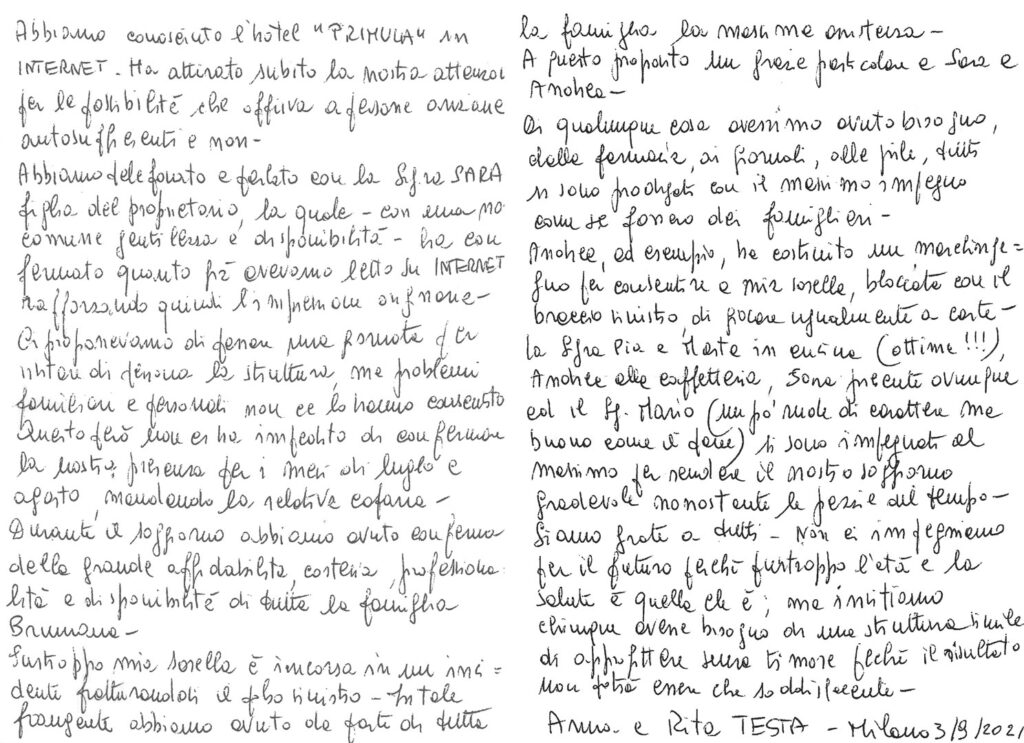 Abbiamo conosciuto l'hotel "PRIMULA" in
INTERNET. Ha attirato subito la nostra attenzione
per le possibilità che offriva a persone anziane
autosufficienti e non-
Abbiamo telefonato e parlato con la Sig.ra SARA
figlia del proprietario, la quale - con una non
comune gentilezza e disponibilità - ha con
fermato quanto già avevamo letto su INTERNET
rafforzando quindi l'impressione originaria-
Ci proponevamo di passare una giornata per
visitare di persona la struttura, ma problemi
familiari e personali non ce lo hanno consentito
Questo però non ci ha impedito di confermare
la nostra presenza per i mesi di luglio e
agosto, mandando la relativa caparra-
Durante il soggiorno abbiamo avuto conferma
della grande affidabilità, cortesia, professiona-
lità e disponibilità di tutta la famiglia
Brumana-
Purtroppo mia sorella è incorsa in un inci=
dente fratturandosi il polso sinistro - In tale
frangente abbiamo avuto da parte di tutta
la famiglia la massima assistenza-
A questo proposito un grazie particolare a Sara e
Andrea-
Di qualunque cosa avessimo avuto bisogno,
dalla farmacia, ai giornali, alle pile, tutti
si sono prodigati con il massimo impegno
come se fossero dei famigliari-
Andrea, ad esempio, ha costruito un marchinge=
gno per consentire a mia sorella, bloccata con il
braccio sinistro, di giocare ugualmente a carte-
la Sig.ra Pia e Marta in cucina (ottime!!!),
Andrea alla caffetteria, Sara presente ovunque
ed il Sig. Mario (un po' rude di carattere ma
buono come il pane) si sono impegnati al
massimo per rendere il nostro soggiorno
gradevole nonostante le pazzie del tempo-
Siamo grate a tutti - Non ci impegniamo
per il futuro perchè purtroppo l'età e la
salute è quella che è; ma invitiamo
chiunque avesse bisogno di una struttura simile
di approfittare senza timore perchè il risultato
non potrà essere che soddisfacente-
Anna e Rita TESTA - Milano 3/9/2021